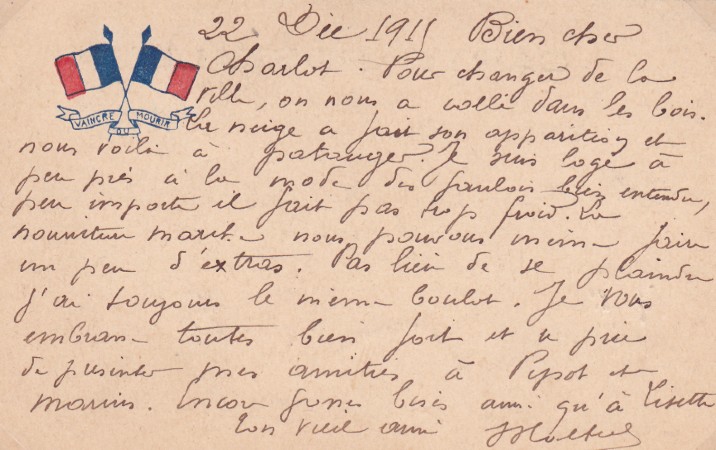 22 Déc 1915 Bien cher
Charlot. Pour changer de la
VAINCRE OU MOURIR
ville, on nous a collé dans les bois.
La neige a fait son apparition et
nous voilà à patauger. Je suis logé à
peu près à la mode des gaulois bien entendu,
peu importe il fait pas trop froid. La
nourriture marche nous pouvons même faire
un peu d'extras. Pas lieu de se plaindre
j'ai toujours le même boulot. Je vous
embrasse toutes bien fort et te prie
de présenter mes amitiés à Pipot et
marius. Encore grosses bises ainsi qu'à Lisette
Ton vieil ami